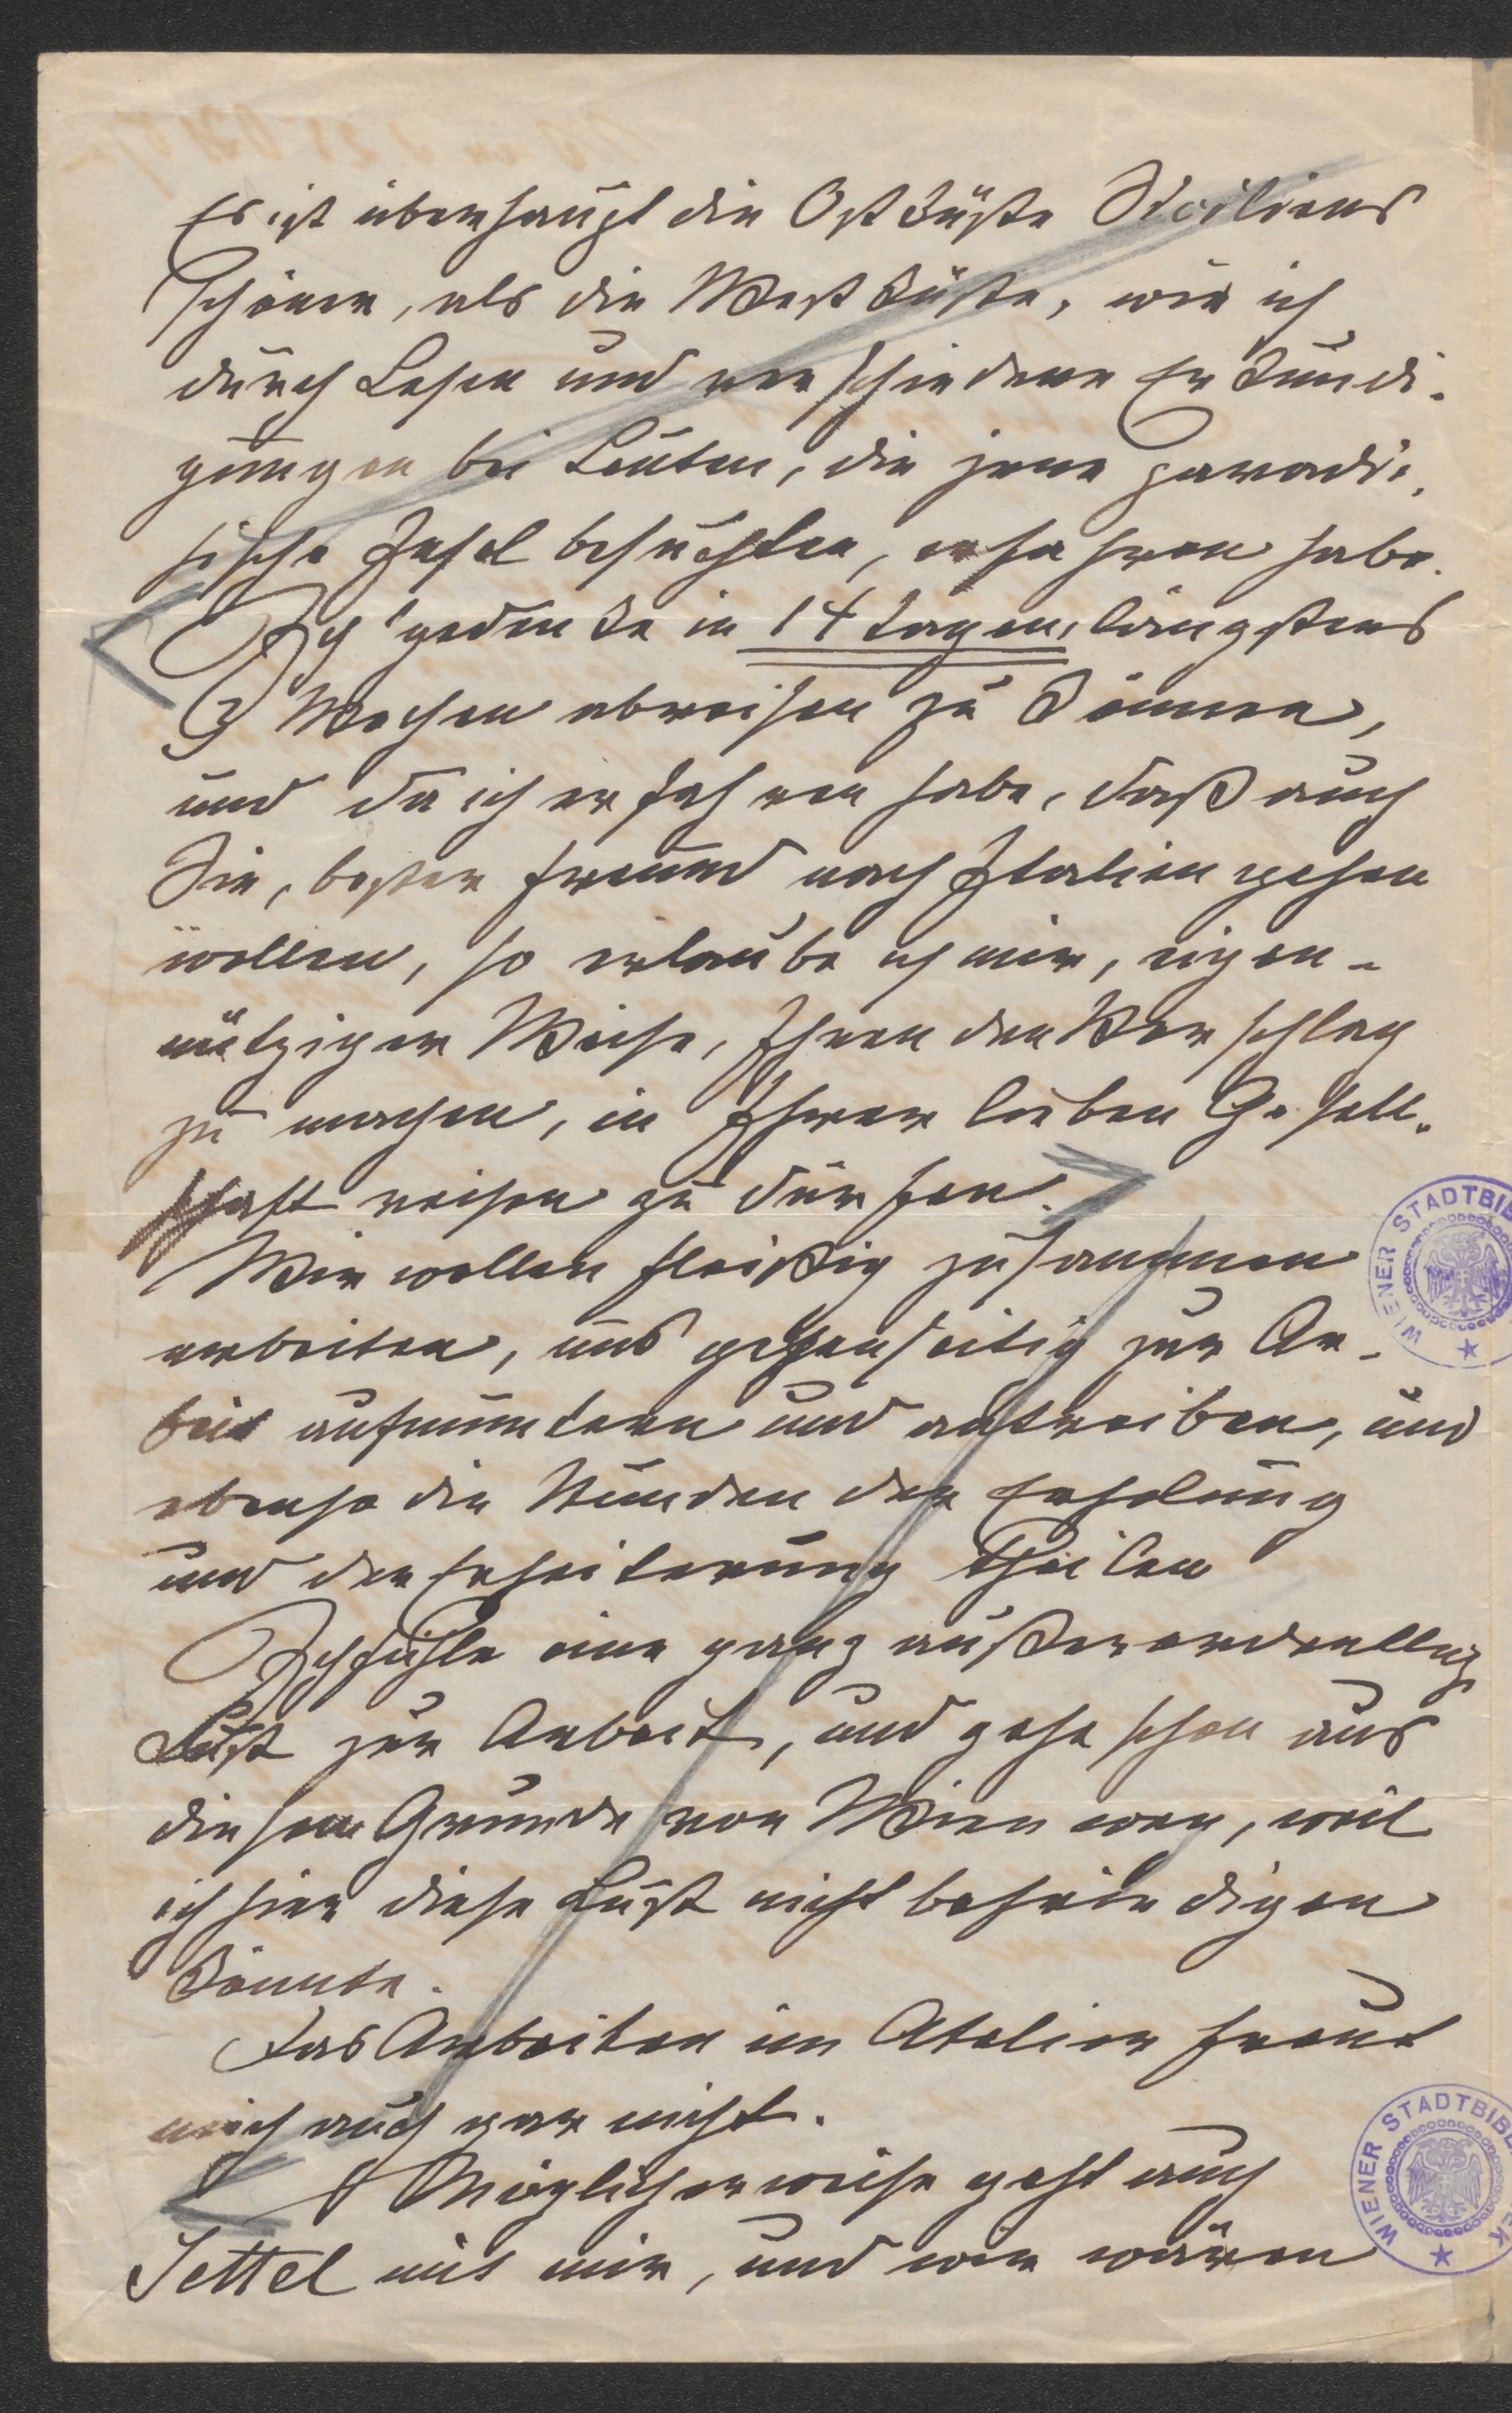 Es ist überhaupt die Ostküste Siciliens
schöner, als die Westküste, wie ich
durch Lesen und verschiedene Erkundi-
gungen bei Leuten, die jene paradi-
sische Insel besuchten, erfahren habe.
Ich gedenke in 14 Tagen, längstens
3 Wochen abreisen zu können,
und da ich erfahren habe, daß auch
Sie, bester Freund nach Italien gehen
wollen, so erlaube ich mir, eigen-
nütziger Weise, Ihnen den Vorschlag
zu machen, in Ihrer lieben Gesell-
schaft reisen zu dürfen.
Wir wollen fleißig zusammen
arbeiten, uns gegenseitig zur Ar-
beit aufmuntern und antreiben, und
ebenso die Stunden der Erholung
und der Erheiterung theilen
Ich fühle eine ganz außerordentlich
Lust zur Arbeit, und gehe schon aus
diesem Grunde von Wien weg, weil
ich hier diese Lust nicht befriedigen
könnte.
Das Arbeiten im Atelier freut
mich auch gar nicht.
Möglicherweise geht auch
Settel mit mir, und wir wären
WIENER STADTBIB
WIENER STADTBIBL EK